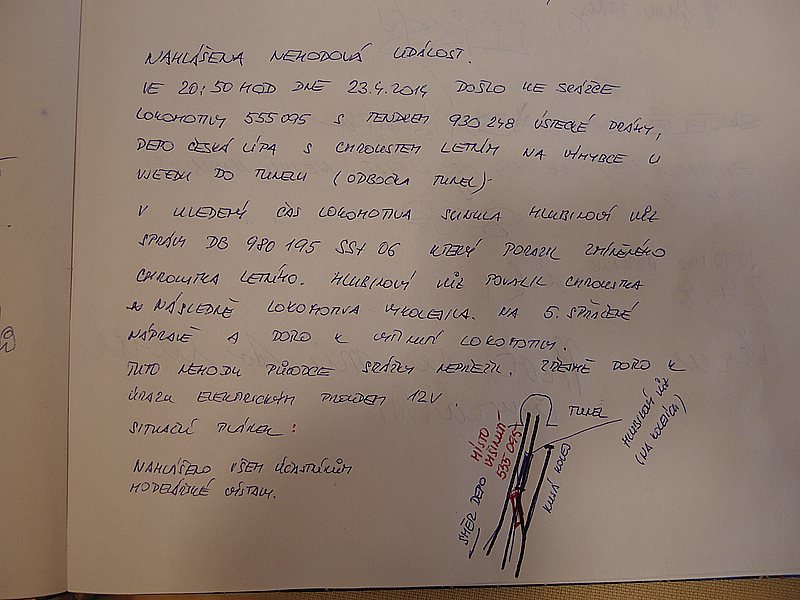 NAHLÁŠENA NEHODOVÁ UDÁLOST.
VE 20:50 HOD DNE 23.4.2014 DOŠLO KE SRÁŽCE
LOKOMOTIVY 555095 S TENDREM 930 248 ÚSTECKÉ DRÁHY,
DEPO ČESKÁ LÍPA S CHROUSTEM LETNÍM NA VÝHYBCE U
VJEZDU DO TUNELU (ODBOČKA TUNEL).
V UVEDENÝ ČAS LOKOMOTIVA SUNULA HLUBINOVÝ VŮZ
SPRÁVY DB 980 195 SSY 06 KTERÝ PORAZIL ZMÍNĚNÉHO
CHROUSTKA LETNÍHO. HLUBINOVÝ VŮZ POVALIL CHROUSTKA
NÁSLEDNĚ LOKOMOTIVA VYKOLEJILA. NA 5. SPŘAŽENÉ
NÁPRAVĚ A DOŠLO K VYŠINUTÍ LOKOMOTIVY.
TUTO NEHODU PŮVODCE SRÁŽKY NEPŘEŽIL. ZŘEJMĚ DOŠLO K
ÚRAZU ELEKTRICKÝM PROUDEM 12V.
SITUAČNÍ PLÁNEK:
NAHLÁŠENO VŠEM ÚČASTNÍKŮM
MODELÁŘSKÉ VÝSTAVY.
TUNEL
MÍSTO
VYŠINUTÍ
555 095
HLUBINOVÝ VŮZ
(NA KOLEJÍCH)
KUSÁ KOLEJ
SMĚR DEPO